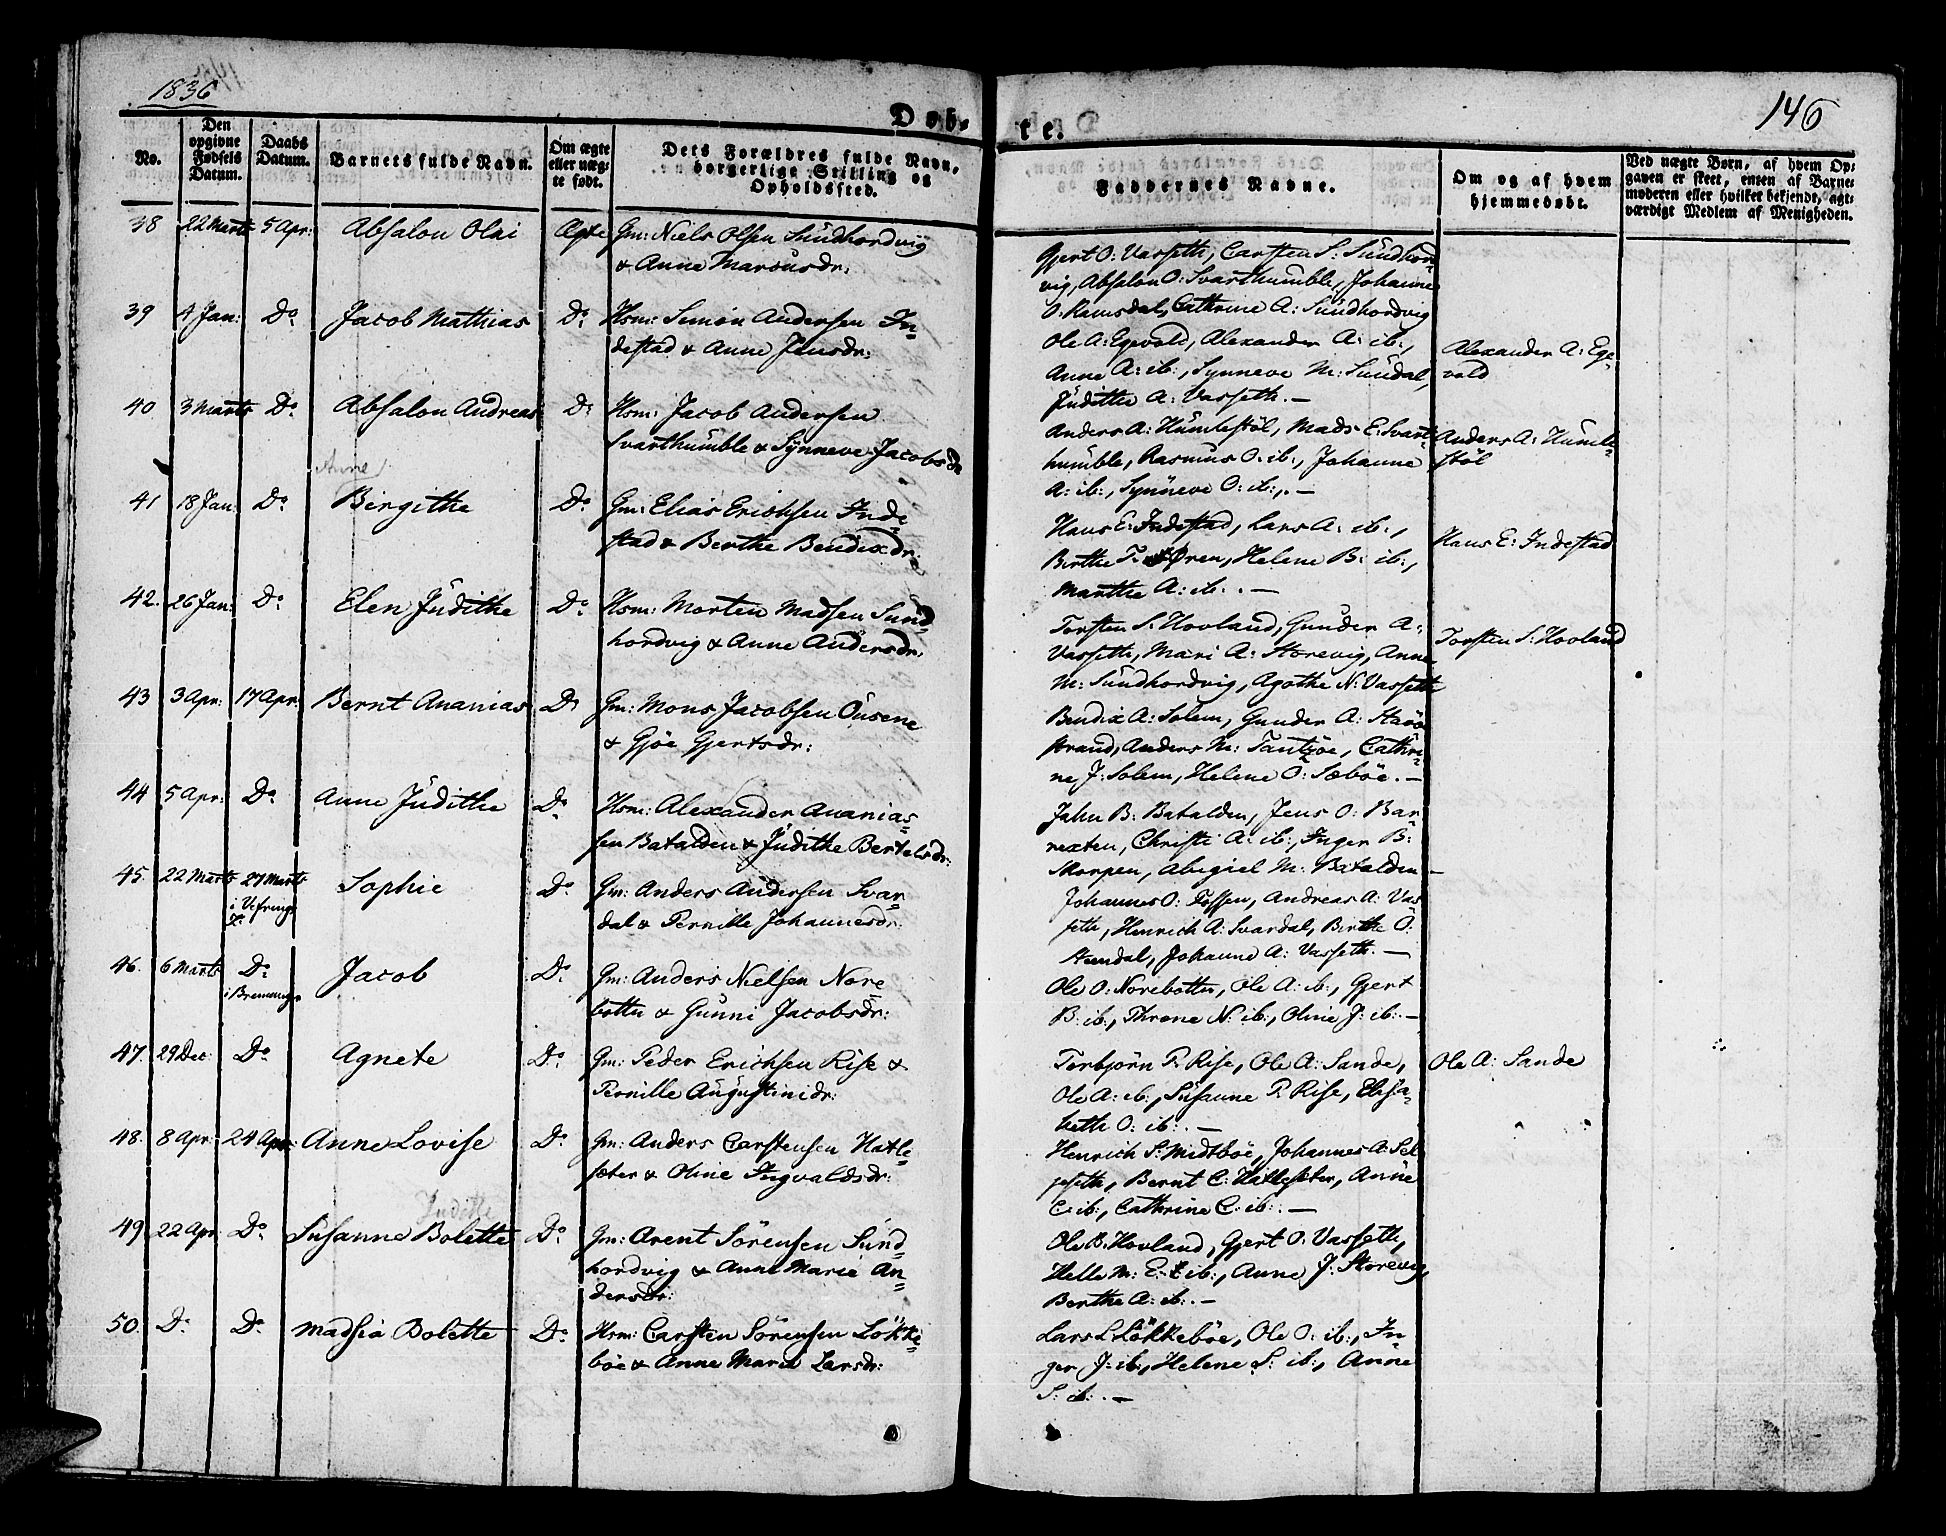 1836
146
Døb-
te.
No.
Den opgivne Fødsels Datum.
Daabs Datum.
Barnets fulde Navn.
Om ægte eller uæg- te født.
Dets Forældres fulde Navn, borgerlige Stilling og Opholdssted.
Faddernes Navne.
Om og af hvem hjemmedøbt.
Ved uægte Børn, af hvem Op-
gaven er skeet, enten af Barne-
moderen eller hvilket bekjendt, agt-
værdigt Medlem af Menigheden.
38 22 Marts 5 Apr: Absalon Olai Ægte Gm: Niels Olsen Sündhordvig
& Anne Marcusdr:
Gjert O: Vasseth, Carsten S: Sündhord-
vig, Absalon O: Svarthumble, Johanne
O: Ramsdal, Cathrine A: Sündhordvig
39 4 Jan: Do Jacob Mathias Do Hsm: Simon Andersen In-
destad & Anne Jensdr:
Ole A: Egevold, Alexander A: ib:,
Anne A: ib:, Synneve M: Sündal,
Jüdithe A: Vasseth. —
Alexander A: Ege-
vold
40 3 Marts Do Absalon Andreas Do Hsm: Jacob Andersen
Svarthümble & Synneve Jacobsdr
Anders A: Hümlestöl, Mads E: Svart-
humble, Rasmus O: ib:, Johanne
A: ib:, Synneve O: ib:, —
Anders A: Hümle-
stöl
Anne
41 18 Jan: Do Birgithe Do Gm: Elias Erichsen Inde
stad & Berthe Bendixdr:
Hans E: Indestad, Lars A: ib:,
Birthe T: Øren, Helene B: ib:,
Marthe A: ib: . —
Hans E: Indestad
42. 26 Jan: Do Elen Jüdithe Do Hsm: Morten Madsen Sünd-
hordvig & Anne Andersdr:
Torsten S: Hovland, Gunder A:
Vasseth, Mari A: Storevig, Anne
M: Sündhordvig, Agothe N: Vasseth
Torsten S: Hovland
43 3 Apr: 17 Apr: Bernt Ananias Do Gm: Mons Jacobsen Öusene
& Gjöe Gjertsdr:
Bendix A: Solem, Gunder A:
strand, Anders M: Tantzöe, Cathri-
ne J: Solem, Helene O: Sæböe. —
44 5 Apr: Do Anne Jüdithe Do Hsm: Alexander Ananias-
sen Batalden & Jüdithe Bertelsdr:
Jahn B: Batalden, Jens O: Bar-
rexten, Christi A: ib:, Inger B:
Skorpen, Abigiel M: Batalden —
45. 22 Marts 27 Marts Sophie Do Gm: Anders Andersen Svar-
i Vefrings
K:
dal & Pernille Johannesdr:
Johannes O: Fossen, Andreas A: Vas
seth, Henrich A: Svardal, Birthe O:
Standal, Johanne A: Vasseth. —
46. 6 Marts Do Jacob Do Gm: Anders Nielsen Nore
i Bremanger
botten & Günni Jacobsdr:
Ole O: Norebotten, Ole A: ib:, Gjert
B: ib:, Throne N: ib:, Oline J: ib: —
47. 29 Dec: Do Agnete Do Gm: Peder Erichsen Rise &
Pernille Augustinidr:
Torbjörn P: Rise, Ole A: Sande,
Ole A: ib:, Susanne P: Rise, Elisa-
beth O: ib: . —
Ole A: Sande
48. 8 Apr: 24 Apr: Anne Lovise Do Gm: Anders Carstensen Hatle-
sæter & Oline Ingvaldsdr:
Henrich S: Midtböe, Johannes A: Sel
seth, Bernt C: Hatlesæter, Anne
C: ib:, Cathrine C: ib: . —
Judithe
49. 22 Apr: Do Susanne Bolette Do Gm: Arent Sörensen Sünd-
hordvig & Anne Marie An-
dersdr:
Ole B: Hovland, Gjert O: Vasseth,
Helle M: E: ib:, Anne J: Storevig,
Berthe A: ib: . —
50. Do Do Madsia Bolette Do Hsm: Carsten Sörensen Lökke-
böe & Anne Maria Larsdr:
Lars L: Lökkeböe, Ole O: ib:, In-
ger J: ib:, Helene S: ib:, Anne
S: ib: . —